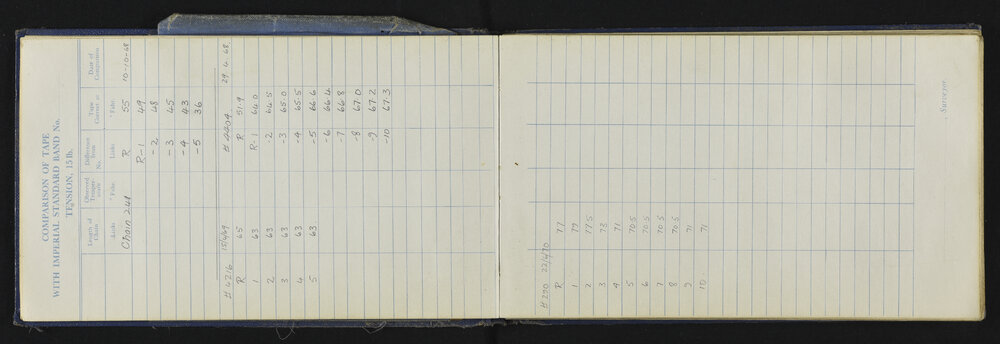 COMPARISON OF TAPE
WITH IMPERIAL STANDARD BAND No.
TENSION, 15 lb.
Length of Chain Observed Temperature Difference from No. Tape Correct at Date of Comparison
Links ° Fahr. Links ° Fahr.
Chain 241 R 55 10-10-68
R-1 49
-2 48
-3 45
-4 43
-5 36
# 4216 15/4/69 # 4404 29. 4. 68
R 65 R 51.9
1 63 R-1 64.0
2 63 -2 64.5
3 63 -3 65.0
4 63 -4 65.5
5 63 -5 66.6
-6 66.4
-7 66.8
-8 67.0
-9 67.2
-10 67.3
# 290 22/4/70
R 77
1 79
2 77.5
3 73
4 71
5 70.5
6 70.5
7 70.5
8 70.5
9 71
10 71
Surveyor.